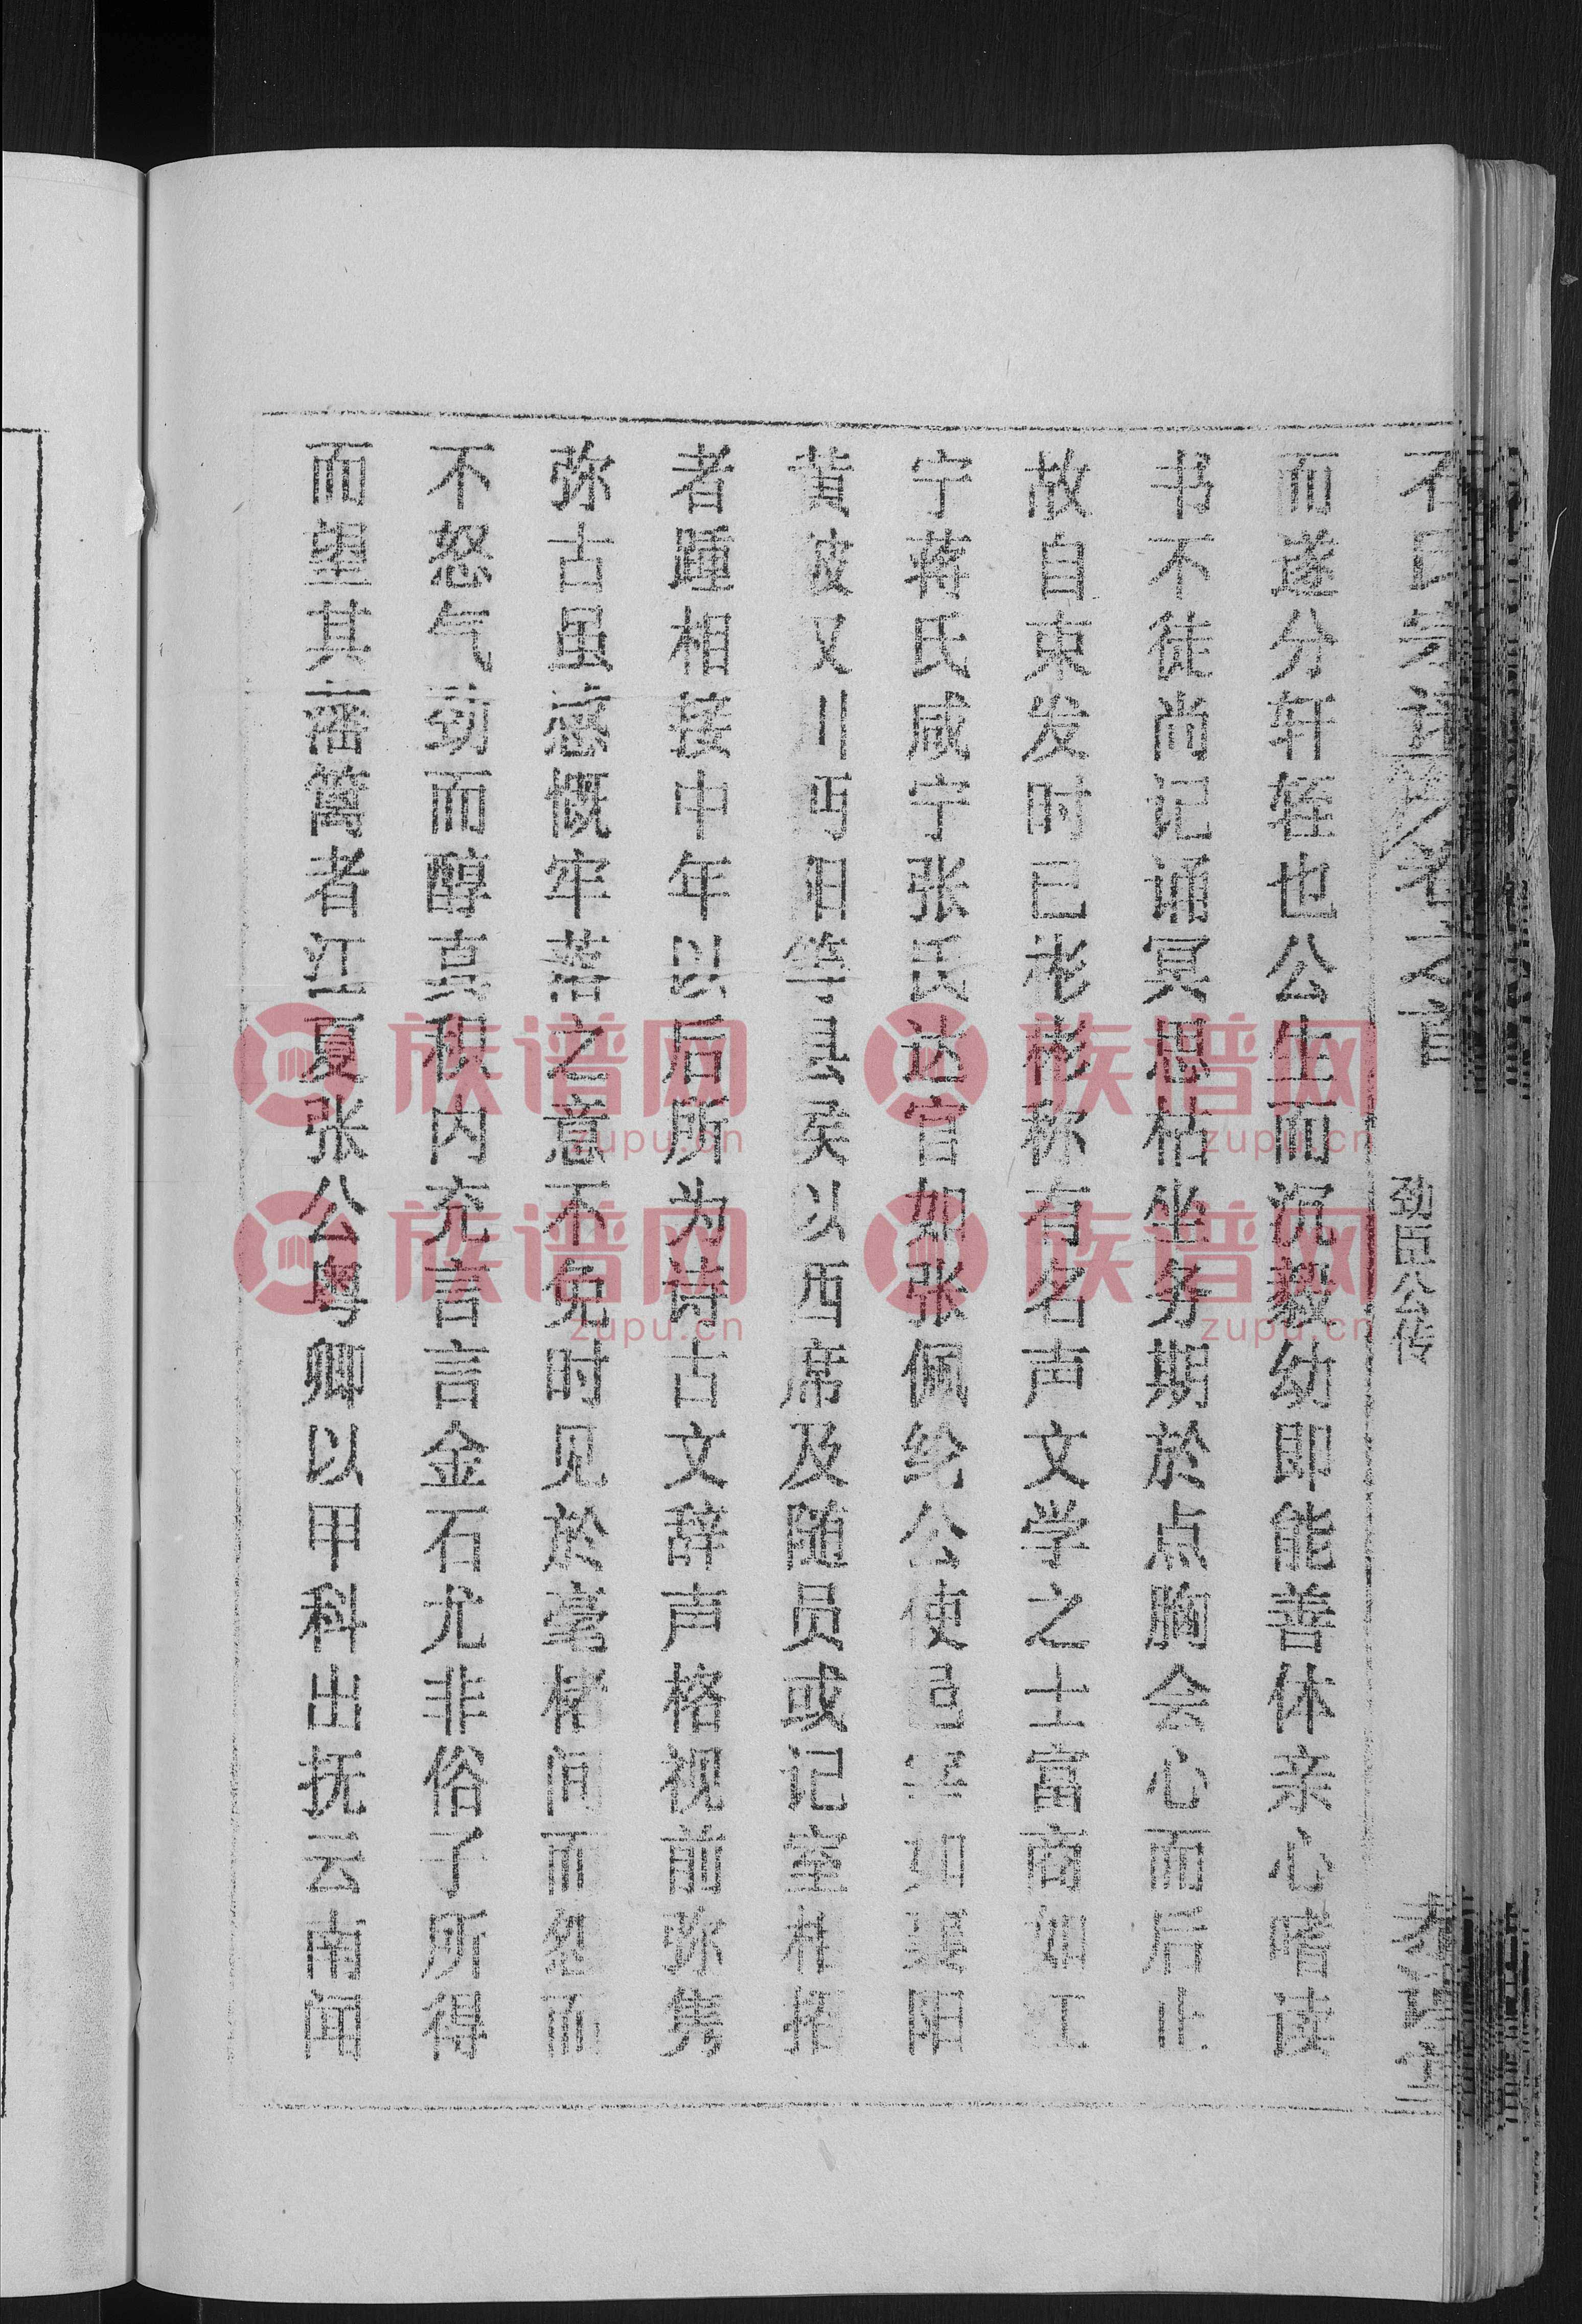 石氏宗谱 卷之首 劲臣公传
而遂分轩轾也公生而沉毅幼即能善体亲心嗜读
书不徒尚记诵冥思枯坐务期於点胸会心而后止
故自束发时已彬彬称有名声文学之士富商如江
宁蒋氏咸宁张氏达官如张佩纶公使邑宰如襄阳
黄陂汉川沔阳等县侯以西席及随员或记室相招
者踵相接中年以后所为诗古文辞声格视前弥隽
弥古虽感慨牢落之意不免时见於毫楮间而怨而
不怒气劲而醇真积内充言言金石尤非俗子所得
而望其藩篱者江夏张公粤卿以甲科出抚云南闻
族谱网
zupu.cn
族谱网
zupu.cn
族谱网
zupu.cn
族谱网
zupu.cn